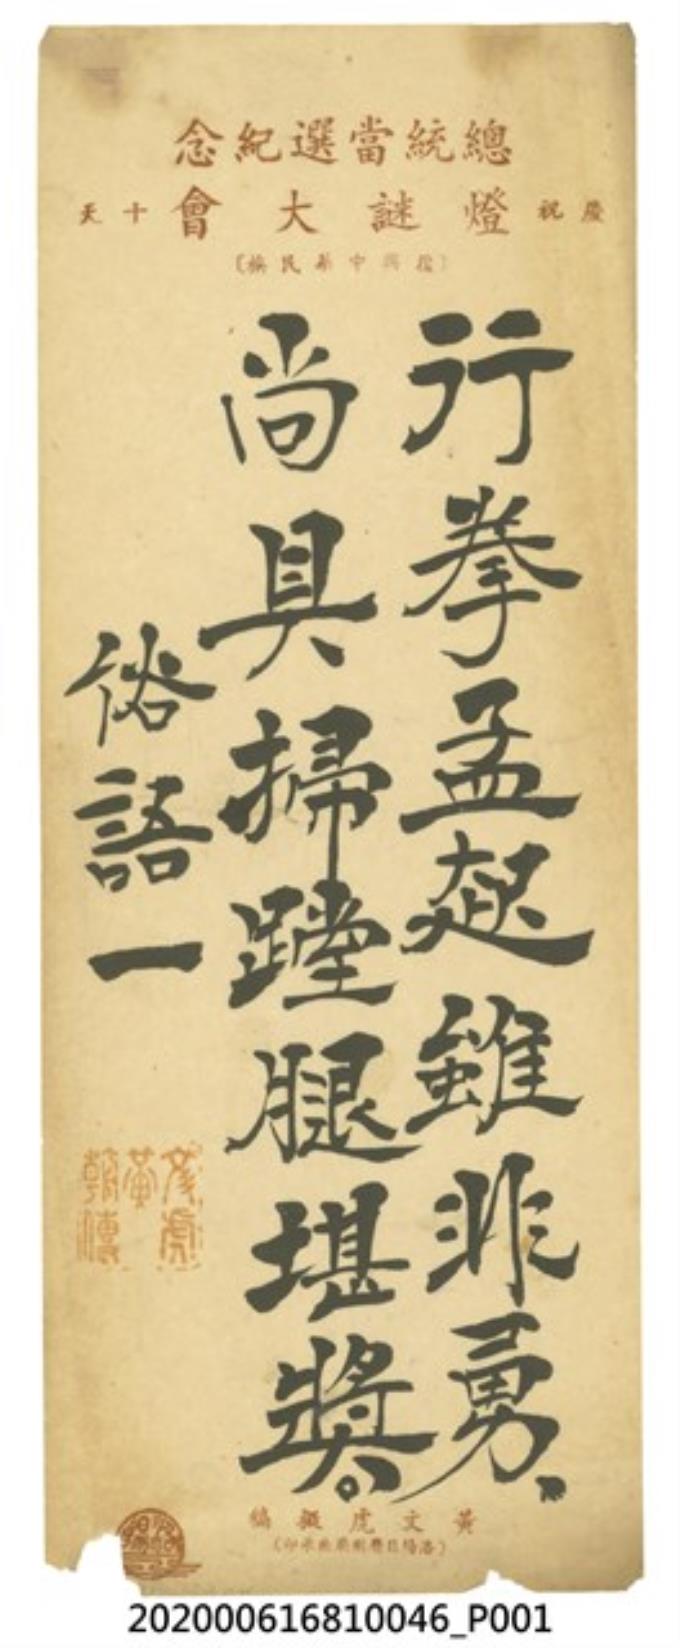 總統當選紀念
慶祝 燈謎大會 十天
行拳孟起雖非勇、
尚具掃蹚腿堪獎。
俗語一
黃文虎擬稿
202000616810046_P001